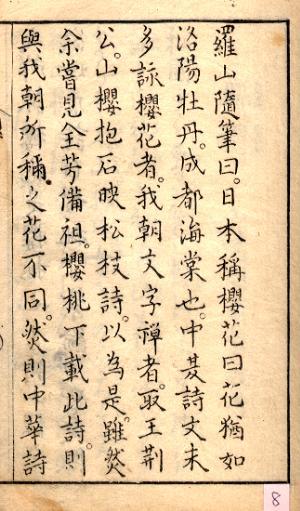 羅山隨筆曰。日本稱櫻花曰花猶如
洛陽牡丹。成都海棠也。中夏詩文未
多詠櫻花者。我朝文字禪者。取王荆
公。山櫻抱石映松枝詩。以為是。雖然
余嘗見全芳備祖。櫻桃下載此詩。則
與我朝所稱之花不同。然則中華詩
8